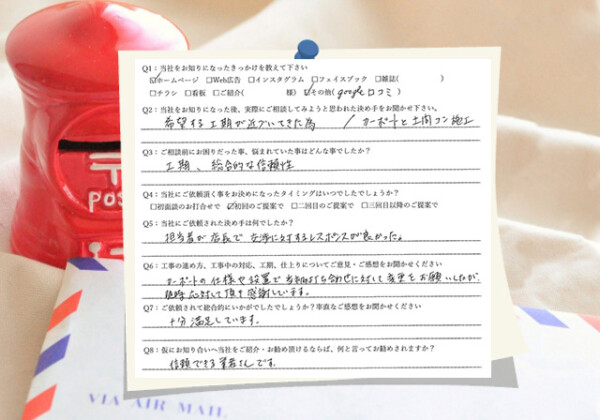 Q1：当社をお知りになったきっかけを教えて下さい
☑ホームページ □Web広告 □インスタグラム □フェイスブック □雑誌( )
□チラシ □看板 □ご紹介( 様) ☑その他(google口コミ)
Q2：当社をお知りになった後、実際にご相談してみようと思われた決め手をお聞かせ下さい。
希望する工期が近づいてきた為 / カーポートと土間コン施工
Q3：ご相談前にお困りだった事、悩まれていた事はどんな事でしたか？
工期、総合的な信頼性
Q4：当社にご依頼頂く事をお決めになったタイミングはいつでしたでしょうか？
□初面談のお打合せで ☑初回のご提案で □二回目のご提案で □三回目以降のご提案で
Q5：当社にご依頼された決め手は何でしたか？
担当者が店長で 交渉に対するレスポンスが良かった。
Q6：工事の進め方、工事中の対応、工期、仕上りについてご意見・ご感想をお聞かせください
カーポートの仕様や設置で当初打ち合わせに対して変更をお願いしたが、
対応して頂き感謝しています。
Q7：ご依頼されて総合的にいかがでしたでしょうか？率直なご感想をお聞かせください
十分満足しています。
Q8：仮にお知り合いへ当社をご紹介・お勧め頂けるならば、何と言ってお勧めされますか？
信頼できる業者さんです。
POS
VIA AIR MAIL